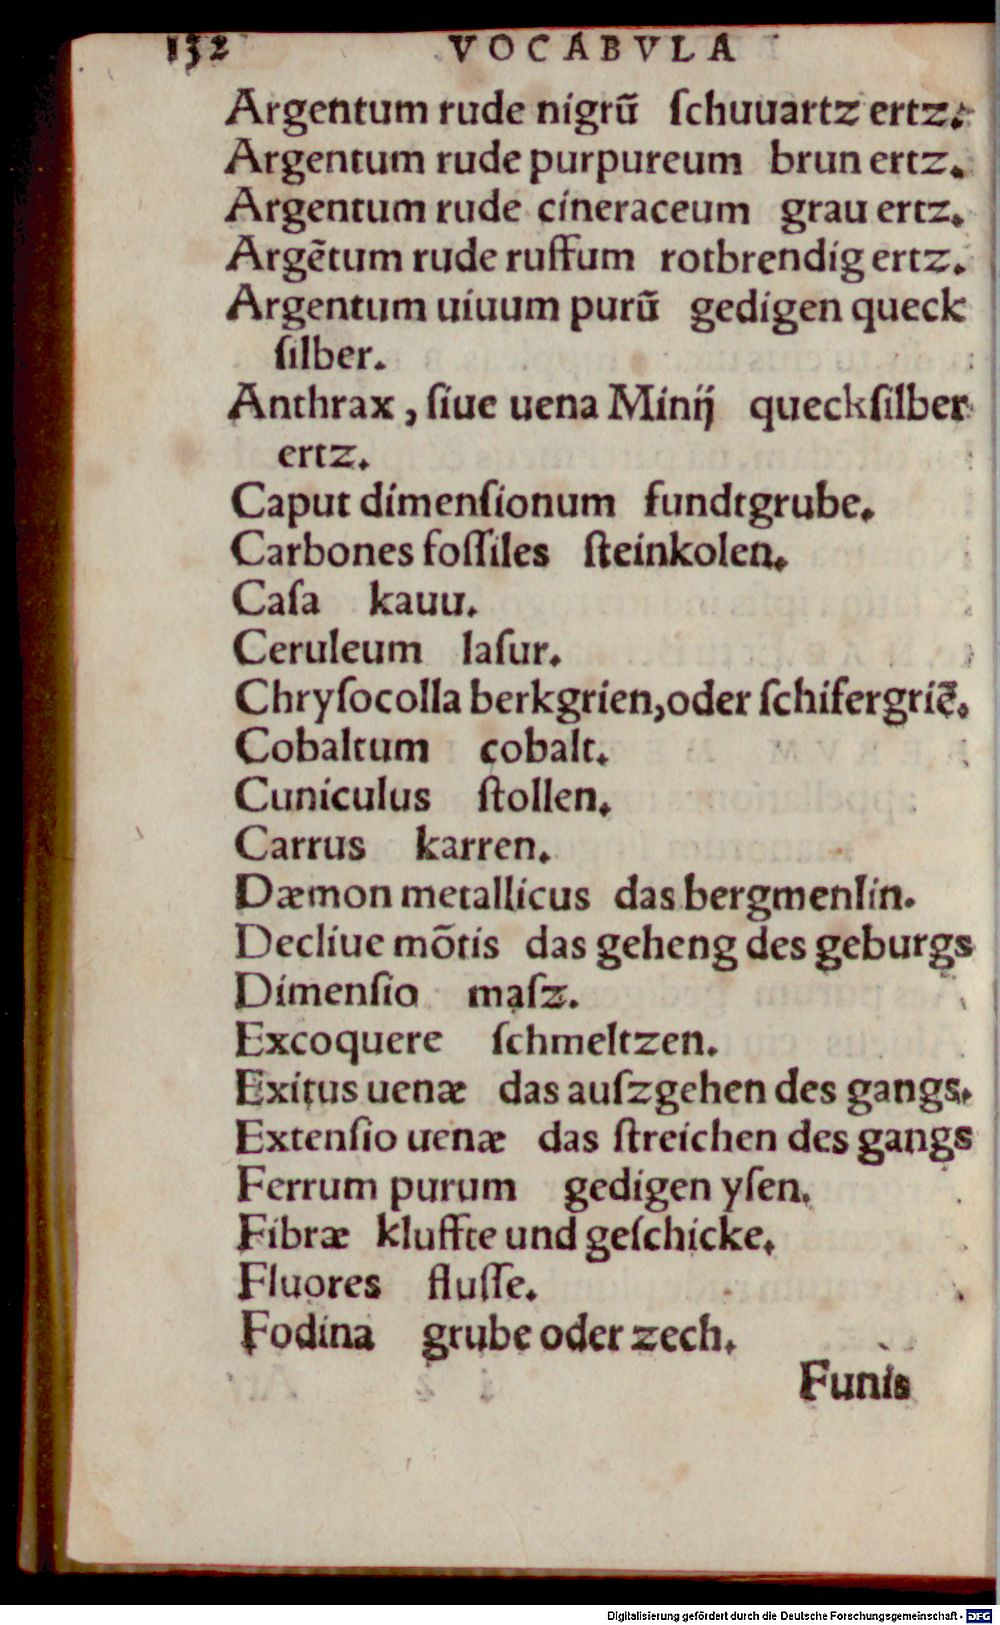 132 VOCABVLA
Argentum rude nigrũ ſchuuartz ertz.
Argentum rude purpureum brun ertz.
Argentum rude cineraceum grau ertz.
Argẽtum rude ruffum rotbrendig ertz.
Argentum uiuum purũ gedigen queck
ſilber.
Anthrax, ſiue uena Minij queckſilber
ertz.
Caput dimenſionum fundtgrube.
Carbones foſſiles ſteinkolen.
Caſa kauu.
Ceruleum laſur.
Chryſocolla berkgrien, oder ſchifergriẽ.
Cobaltum cobalt.
Cuniculus ſtollen.
Carrus karren.
Dæmon metallicus das bergmenlin.
Decliue mõtis das geheng des geburgs
Dimenſio maſz.
Excoquere ſchmeltzen.
Exitus uenæ das auſzgehen des gangs.
Extenſio uenæ das ſtreichen des gangs
Ferrum purum gedigen yſen.
Fibræ kluffte und geſchicke.
Fluores fluſſe.
Fodina grube oder zech.
Funis
Digitalisierung gefördert durch die Deutsche Forschungsgemeinschaft - DFG